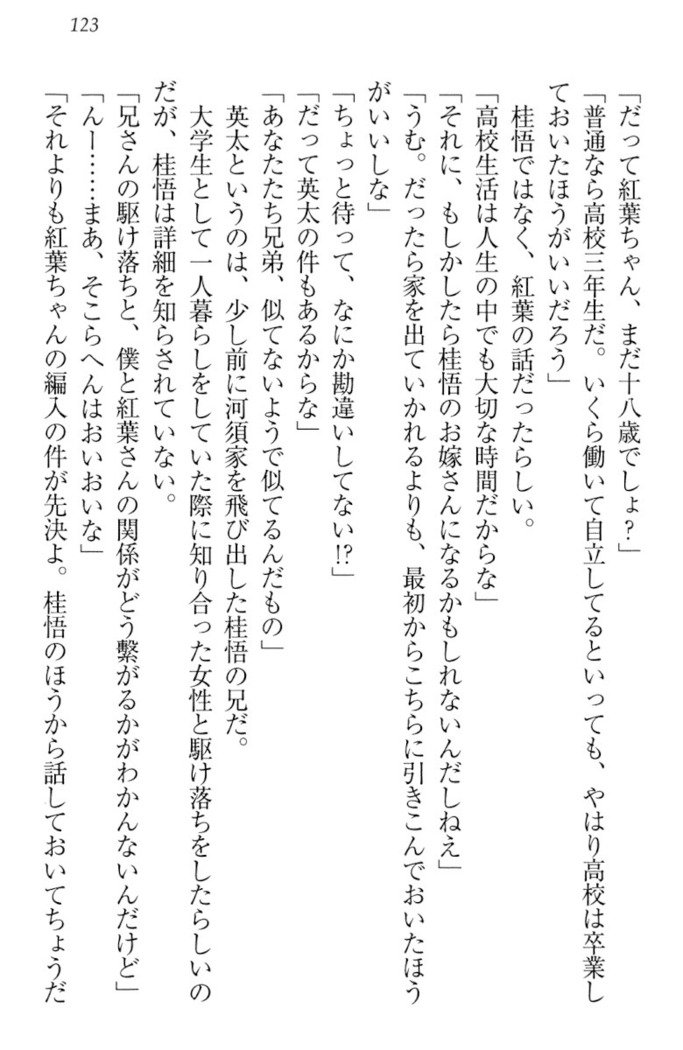 123
「だって紅葉ちゃん、まだ十八歳でしょ？」
「普通なら高校三年生だ。いくら働いて自立してるといっても、やはり高校は卒業し
ておいたほうがいいだろう」
　桂悟ではなく、紅葉の話だったらしい。
「高校生活は人生の中でも大切な時間だからな」
「それに、もしかしたら桂悟のお嫁さんになるかもしれないんだしねえ」
「うむ。だったら家を出ていかれるよりも、最初からこちらに引きこんでおいたほう
がいいしな」
「ちょっと待って、なにか勘違いしてない!?」
「だって英太の件もあるからな」
「あなたたち兄弟、似てないようで似てるんだもの」
　英太というのは、少し前に河須家を飛び出した桂悟の兄だ。
　大学生として一人暮らしをしていた際に知り合った女性と駆け落ちをしたらしいの
だが、桂悟は詳細を知らされていない。
「兄さんの駆け落ちと、僕と紅葉さんの関係がどう繋がるかがわかんないんだけど」
「んー……まあ、そこらへんはおいおいな」
「それよりも紅葉ちゃんの編入の件が先決よ。桂悟のほうから話しておいてちょうだ